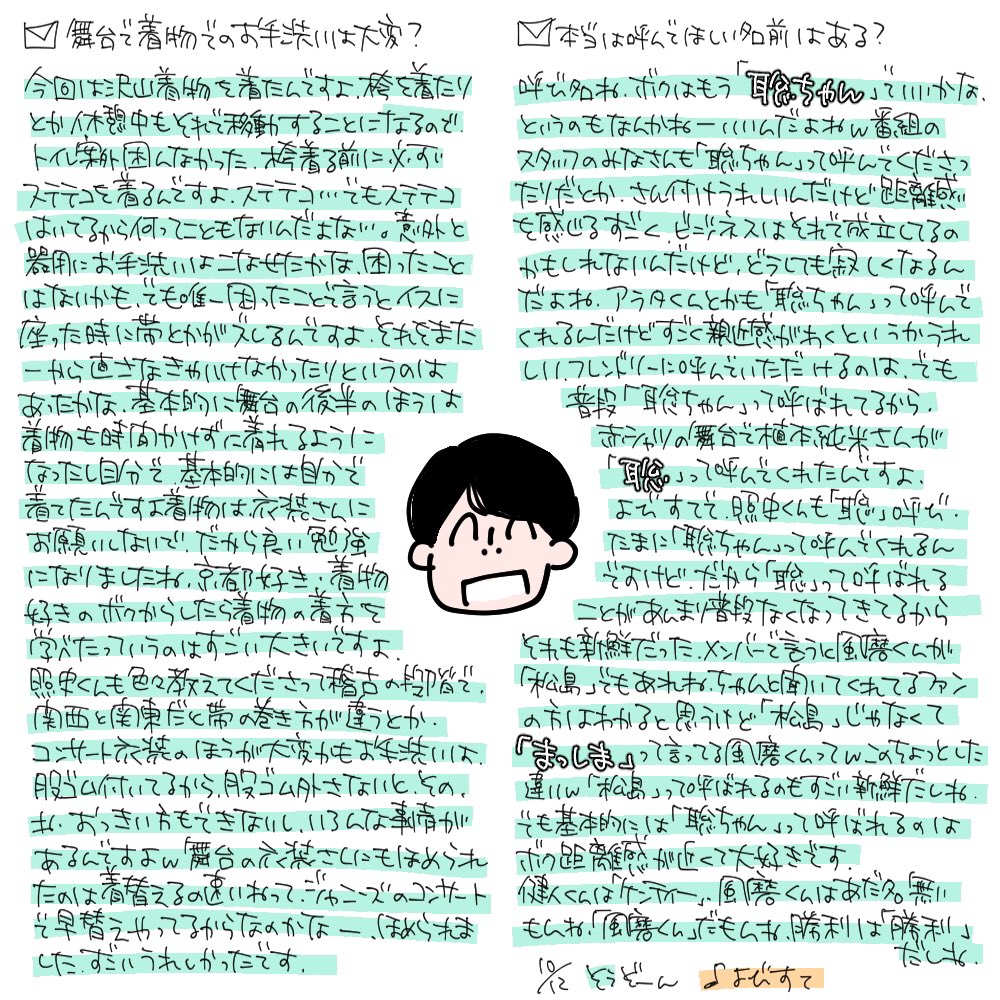 舞台で着物でのお手洗いは大変？
今回は沢山着物を着たんですよ、袴を着たり
とか休憩中もそれで移動することになるので、
トイレ案外困んなかった、袴着る前に必ず
ステテコを着るんですよ、ステテコ…でもステテコ
はいてるから何ってこともないんだよな…。意外と
器用にお手洗いはこなせたかな、困ったこと
はないかも、でも唯一困ったことで言うとイスに
座った時に帯とかがズレるんですよ、それでまた
一から直さなきゃいけなかったりというのは
あったかな、基本的に舞台の後半のほうは
着物も時間かけずに着れるように
なったし自分で、基本的には自分で
着てたんですよ着物は、衣装さんに
お願いしないで、だから良い勉強
になりましたね、京都好き、着物
好きのボクからしたら着物の着方を
学べたっていうのはすごい大きいですよ、
照史くんも色々教えてくださって稽古の段階で、
関西と関東だと帯の巻き方が違うとか、
コンサート衣装のほうが大変かもお手洗いは、
股ゴム付いてるから、股ゴム外さないと、その、
ね、おっきい方もできないし、いろんな事情が
あるんですよw 舞台の衣装さんにもほめられ
たのは着替えるの速いねって、ジャニーズのコンサート
で早替えやってるからなのかなー、ほめられま
した、すごいうれしかったです、
本当は呼んでほしい名前はある？
呼び名ね、ボクはもう「聡ちゃん」でいいかな、
というのもなんかねーいいんだよねw 番組の
スタッフのみなさんも「聡ちゃん」って呼んでくださっ
たりだとか、さん付けうれしいんだけど距離感
を感じるすごく、ビジネスはそれで成立してるの
かもしれないんだけど、どうしても寂しくなるん
だよね、アラタくんとかも「聡ちゃん」って呼んで
くれるんだけどすごく親近感がわくというかうれ
しい、フレンドリーに呼んでいただだけるのは、でも
普段「聡ちゃん」って呼ばれてるから、
赤シャツの舞台で植本純米さんが
「聡」って呼んでくれたんですよ、
よびすてで、照史くんも「聡」呼び、
たまに「聡ちゃん」って呼んでくれるん
ですけど、だから「聡」って呼ばれる
ことがあんまり普段なくなってきてるから
それも新鮮だった、メンバーで言うと風磨くんが
「松島」でもあれね、ちゃんと聞いてくれてるファン
の方はわかると思うけど「松島」じゃなくて
「まっしま」って言ってる風磨くんってwこのちょっとした
違いw「松島」って呼ばれるのもすごい新鮮だしね、
でも基本的には「聡ちゃん」って呼ばれるのは
ボク距離感が近くて大好きです、
健人くんは「ケンティー」、風磨くんはあだ名無い
もんね、「風磨くん」だもんね、勝利は「勝利」
だしね、
10/12 そうどーん ♪よびすて